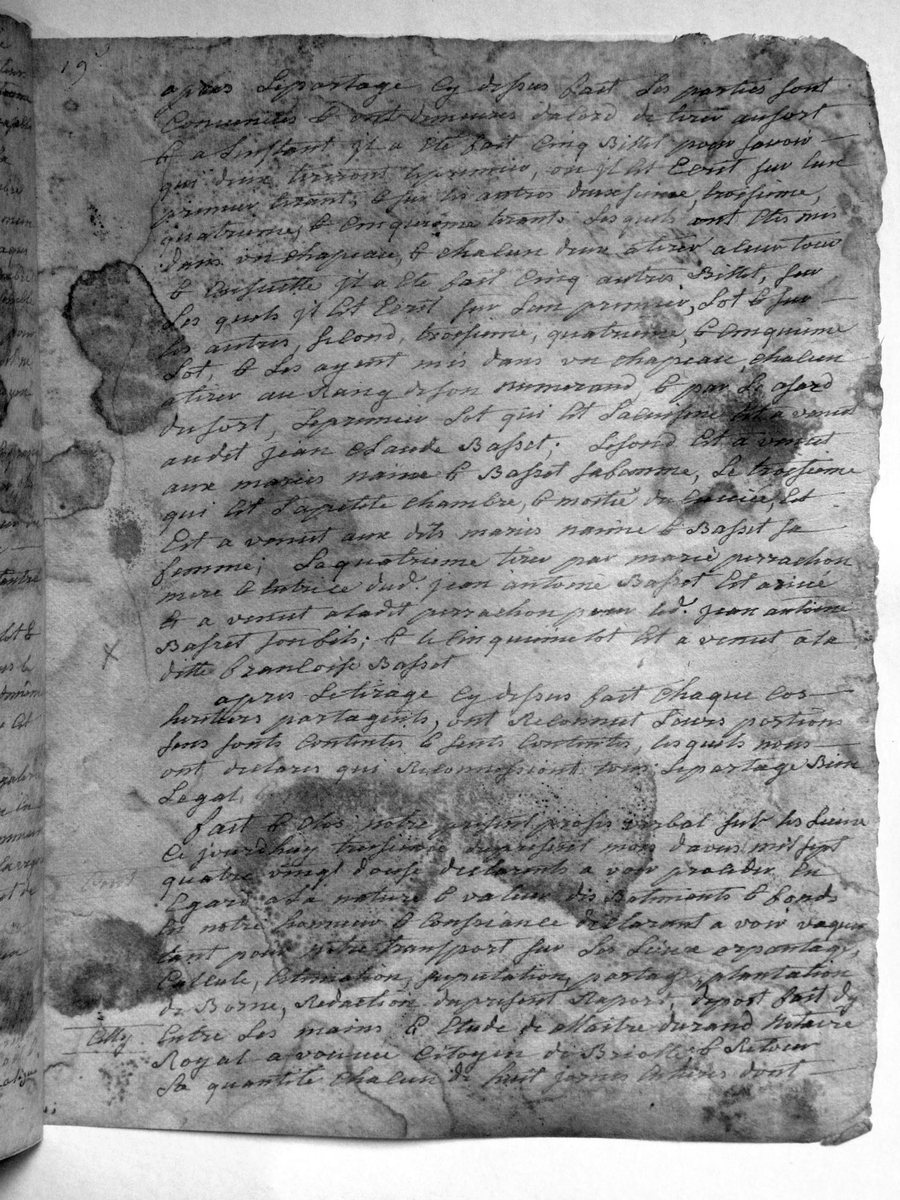 19
apres Lepartage Cy desus fait Les parties sont
Convenues & ont demeures dacord de tirer ausort
& a Linstant jl a ete fait Cinq Billet pour savoir
qui deux tireront lepremier, ou jl Est Ecrit sur lun
premier tirant, & sur les autres deuxsieme, troisieme,
quatrieme, & Cinquieme tirants Lesquels ont Etes mis
dans un Chapeau, & chalun deux atirer aleur tour
& Ensuitte jl a Ete fait Cinq autres Billet, sur
Les quels jl Est Ecrit sur Lun premier, Lot & sur
les autres, second, troisieme, quatrieme, & Cinquieme
Lot, & Les ayent mis dans un chapeau chalun
atirer au Rang deson numerand, & par Le asard
dusort, Lepremier Lot qui Est Lacuisine Est a venut
audit jean Claude Basset; Lesond Est a venut
aux maries naime & Basset safemme, Le troisieme
qui Est Lapetite chambre, & moitie du Est
Est a venut aux dits maries naime & Basset sa
femme; Laquatrieme tirer par marie perrachon
mere & tutrice dud. jean antoine Basset Est arive
& a venut aladit perrachon pour led. jean antoine
Basset sonfils; & le Cinquieme lot Est a venut ala
ditte francoise Basset
apres Letirage Cy desus fait Chaque Cos
heritiers partagents, ont Reconnut Leurs portions
sens sonts Contentes & sents Contentes, lesquels nous
ont declares qui Reconnoissiont tous Lepartage Bien
Legal
fait & Clos notre present proses verbal sub les Lieux
Ce jourdhuy troisieme dupresent mois davril mil sept
quatre vingt douse declarents a voir proceder En
Egard ala nature & valeur des Batiments & fonds
En notre honneur & Consciance declarant a voir vaquer
tant pour notre transport sur Les Lieux arpontage,
Calcule, Estimation, suputation, partage, plantation
de Borne, Redaction dupresent Raport, depost fait dy
Entre Les mains & Etude de Maitre durand Notaire
Royal a voue Citoyen de & Retour
La quantite Chalun de huit jornes Entiers dont